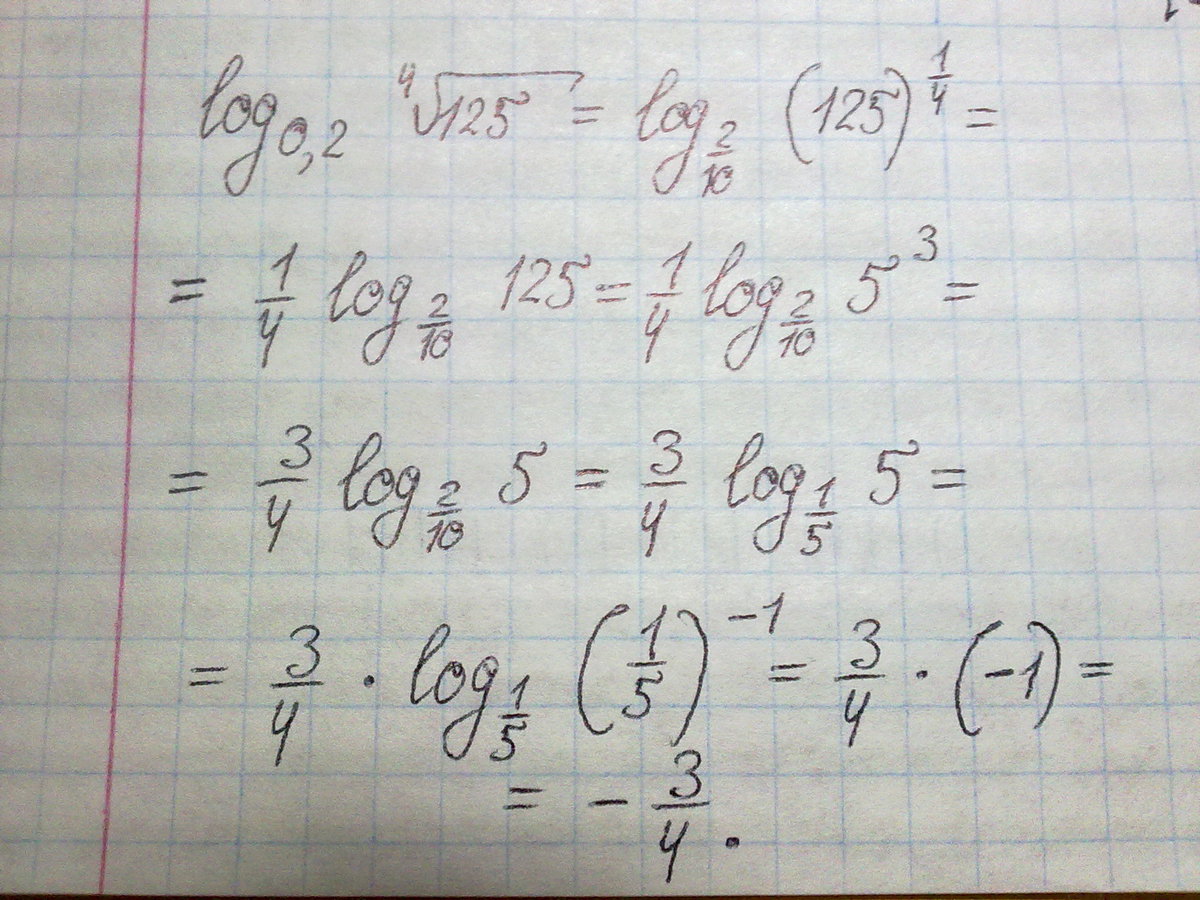 log_{0,2} ⁴√125 = log_{2/10} (125)^{1/4} =
= 1/4 log_{2/10} 125 = 1/4 log_{2/10} 5^3 =
= 3/4 log_{2/10} 5 = 3/4 log_{1/5} 5 =
= 3/4 · log_{1/5} (1/5)^{-1} = 3/4 · (-1) =
= - 3/4 .